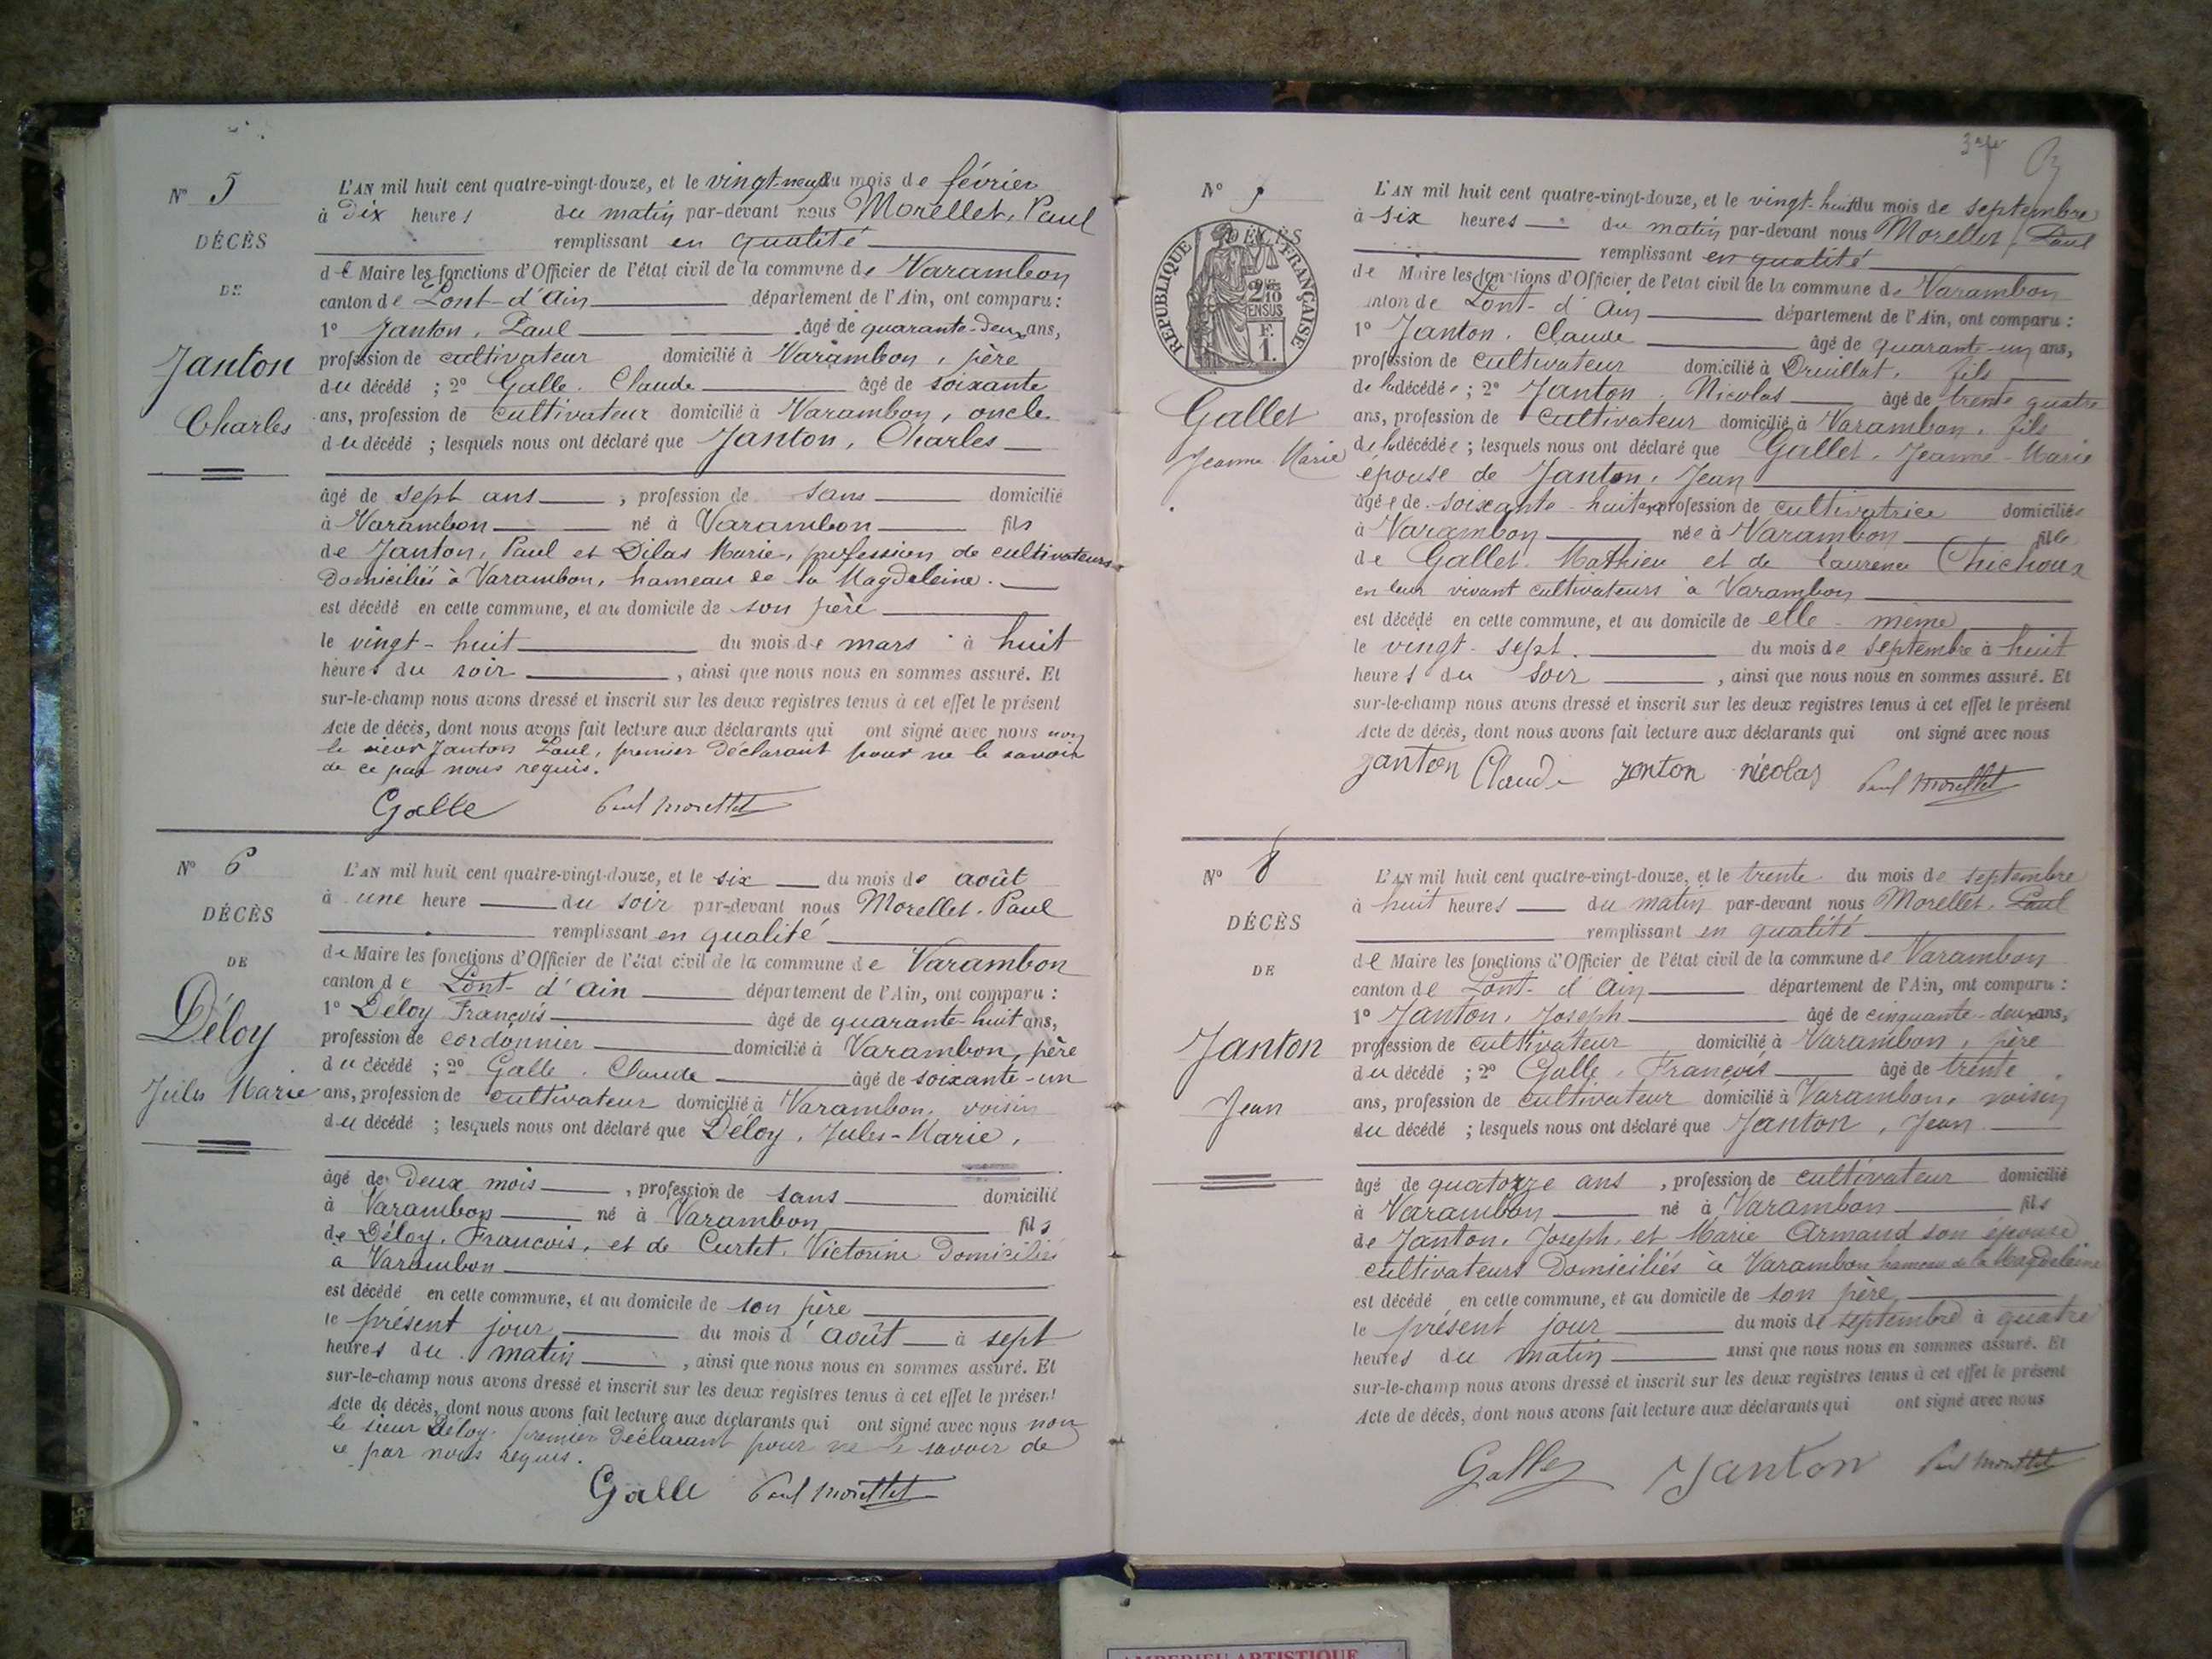 N° 5
DÉCÈS
DE
Janton
Charles
L'AN mil huit cent quatre-vingt-douze, et le vingt-neuf du mois de février
à Dix heures du matin par-devant nous Morellet, Paul
remplissant en qualité
de Maire les fonctions d'Officier de l'état civil de la commune de Varambon
canton de Pont-d'Ain département de l'Ain, ont comparu :
1° Janton, Paul âgé de quarante-deux ans,
profession de cultivateur domicilié à Varambon, père
du décédé ; 2° Galle, Claude âgé de soixante
ans, profession de cultivateur domicilié à Varambon, oncle
du décédé ; lesquels nous ont déclaré que Janton, Charles
âgé de sept ans, profession de sans domicilié
à Varambon né à Varambon fils
de Janton, Paul et Dilas Marie, profession de cultivateurs
Domiciliés à Varambon, hameau de la Magdeleine.
est décédé en cette commune, et au domicile de son père
le vingt-huit du mois de mars à huit
heures du soir, ainsi que nous nous en sommes assuré. Et
sur-le-champ nous avons dressé et inscrit sur les deux registres tenus à cet effet le présent
Acte de décès, dont nous avons fait lecture aux déclarants qui ont signé avec nous non
le sieur Janton Paul, premier Déclarant pour ne le savoir
de ce par nous requis.
Galle Paul Morellet
N° 6
DÉCÈS
DE
Déloy
Jules Marie
L'AN mil huit cent quatre-vingt-douze, et le six du mois de août
à une heure du soir par-devant nous Morellet, Paul
remplissant en qualité
de Maire les fonctions d'Officier de l'état civil de la commune de Varambon
canton de Pont-d'Ain département de l'Ain, ont comparu :
1° Déloy François âgé de quarante-huit ans,
profession de cordonnier domicilié à Varambon, père
du décédé ; 2° Galle, Claude âgé de soixante-un
ans, profession de cultivateur domicilié à Varambon, voisin
du décédé ; lesquels nous ont déclaré que Déloy, Jules-Marie,
âgé de Deux mois, profession de sans domicilié
à Varambon né à Varambon fils
de Déloy, François, et de Curtet, Victorine Domiciliés
à Varambon
est décédé en cette commune, et au domicile de son père
le présent jour du mois d'août à sept
heures du matin, ainsi que nous nous en sommes assuré. Et
sur-le-champ nous avons dressé et inscrit sur les deux registres tenus à cet effet le présent
Acte de décès, dont nous avons fait lecture aux déclarants qui ont signé avec nous non
le sieur Déloy, premier Déclarant pour ne le savoir de
ce par nous requis.
Galle Paul Morellet
N° 7
DÉCÈS
RÉPUBLIQUE FRANÇAISE
2/10 EN SUS
F. 1.
Gallet
Jeanne Marie
L'AN mil huit cent quatre-vingt-douze, et le vingt-huit du mois de septembre
à six heures du matin par-devant nous Morellet, Paul
remplissant en qualité
de Maire les fonctions d'Officier de l'état civil de la commune de Varambon
canton de Pont-d'Ain département de l'Ain, ont comparu :
1° Janton, Claude âgé de quarante-un ans,
profession de cultivateur domicilié à Druillat, fils
de la décédée ; 2° Janton, Nicolas âgé de trente quatre
ans, profession de cultivateur domicilié à Varambon, fils
de la décédée ; lesquels nous ont déclaré que Gallet, Jeanne-Marie
épouse de Janton, Jean
âgée de soixante-huit ans, profession de cultivatrice domiciliée
à Varambon née à Varambon fille
de Gallet, Mathieu et de Laurence Chichoux
en leur vivant cultivateurs à Varambon
est décédé en cette commune, et au domicile de elle-même
le vingt-sept du mois de septembre à huit
heures du soir, ainsi que nous nous en sommes assuré. Et
sur-le-champ nous avons dressé et inscrit sur les deux registres tenus à cet effet le présent
Acte de décès, dont nous avons fait lecture aux déclarants qui ont signé avec nous
Janton Claude Janton nicolas Paul Morellet
N° 8
DÉCÈS
DE
Janton
Jean
L'AN mil huit cent quatre-vingt-douze, et le trente du mois de septembre
à huit heures du matin par-devant nous Morellet, Paul
remplissant en qualité
de Maire les fonctions d'Officier de l'état civil de la commune de Varambon
canton de Pont-d'Ain département de l'Ain, ont comparu :
1° Janton, Joseph âgé de cinquante-deux ans,
profession de cultivateur domicilié à Varambon, père
du décédé ; 2° Galle, François âgé de trente
ans, profession de cultivateur domicilié à Varambon, voisin
du décédé ; lesquels nous ont déclaré que Janton, Jean
âgé de quatorze ans, profession de cultivateur domicilié
à Varambon né à Varambon fils
de Janton, Joseph, et Marie Armand son épouse
cultivateurs Domiciliés à Varambon hameau de la Magdeleine
est décédé en cette commune, et au domicile de son père
le présent jour du mois de septembre à quatre
heures du matin ainsi que nous nous en sommes assuré. Et
sur-le-champ nous avons dressé et inscrit sur les deux registres tenus à cet effet le présent
Acte de décès, dont nous avons fait lecture aux déclarants qui ont signé avec nous
Galle Janton Paul Morellet